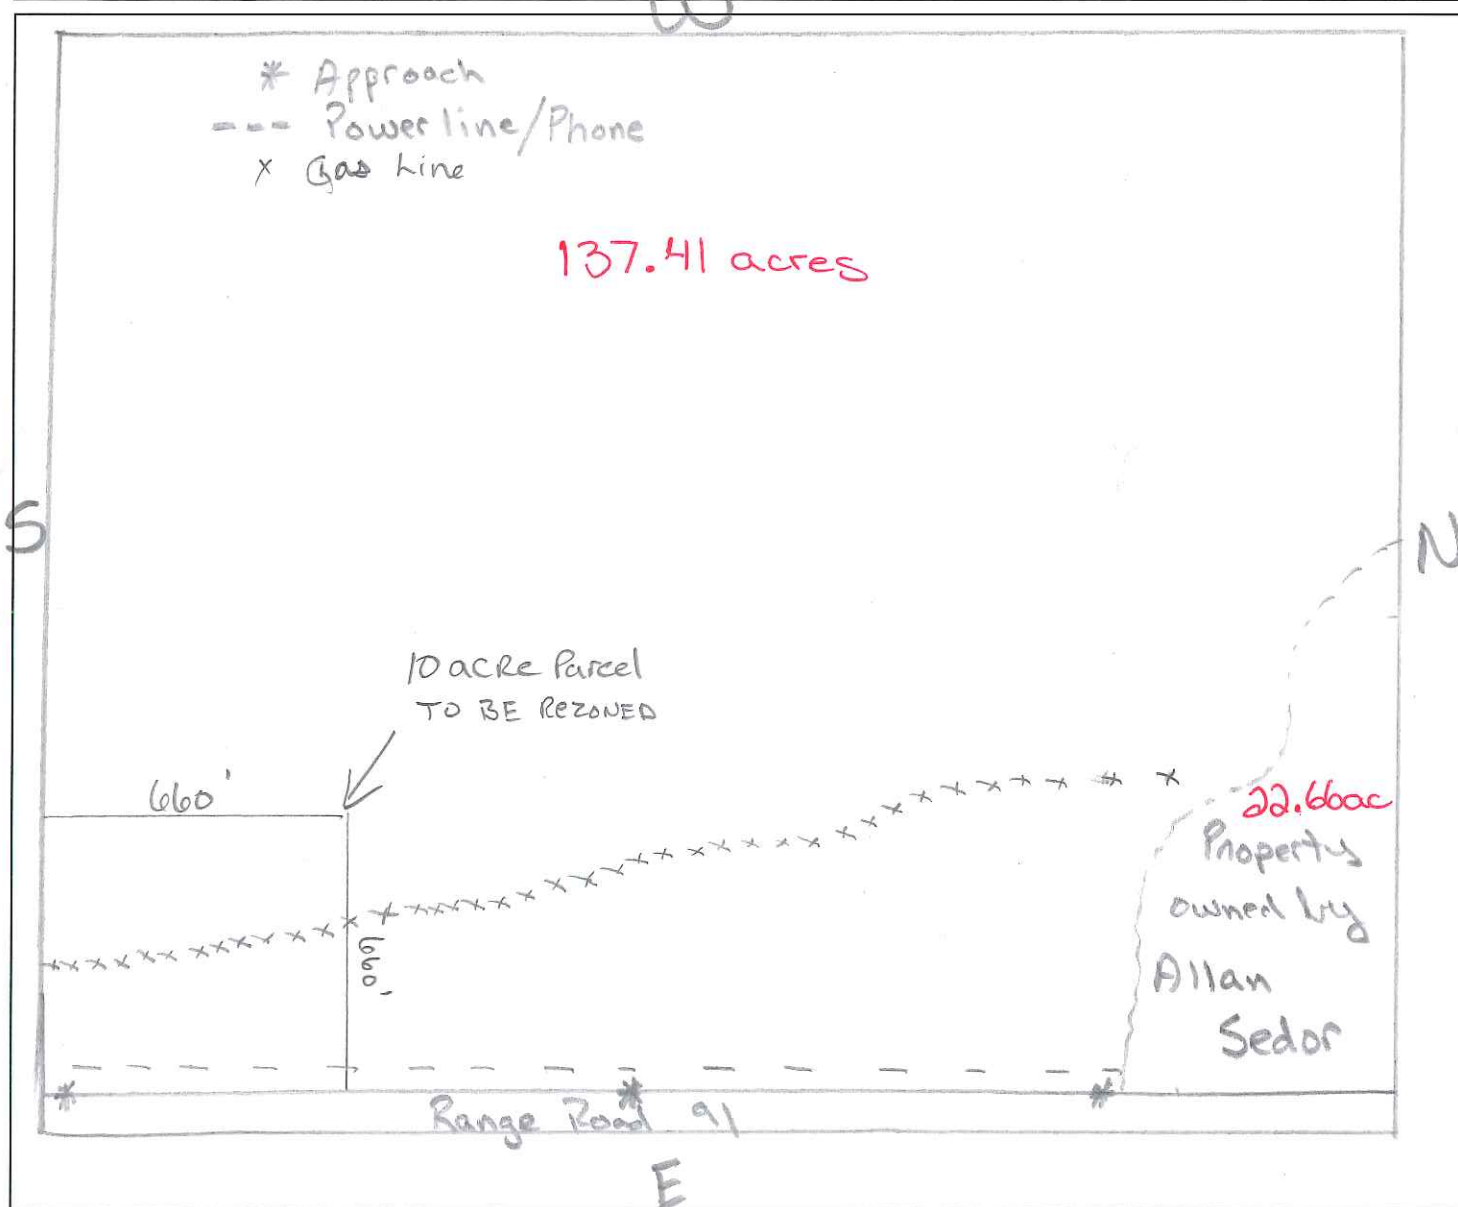 W
* Approach
--- Powerline/Phone
x Gas Line
137.41 acres
S
N
10 acre Parcel
TO BE REZONED
660'
660'
22.66ac
Property
owned by
Allan
Sedor
Range Road 91
E